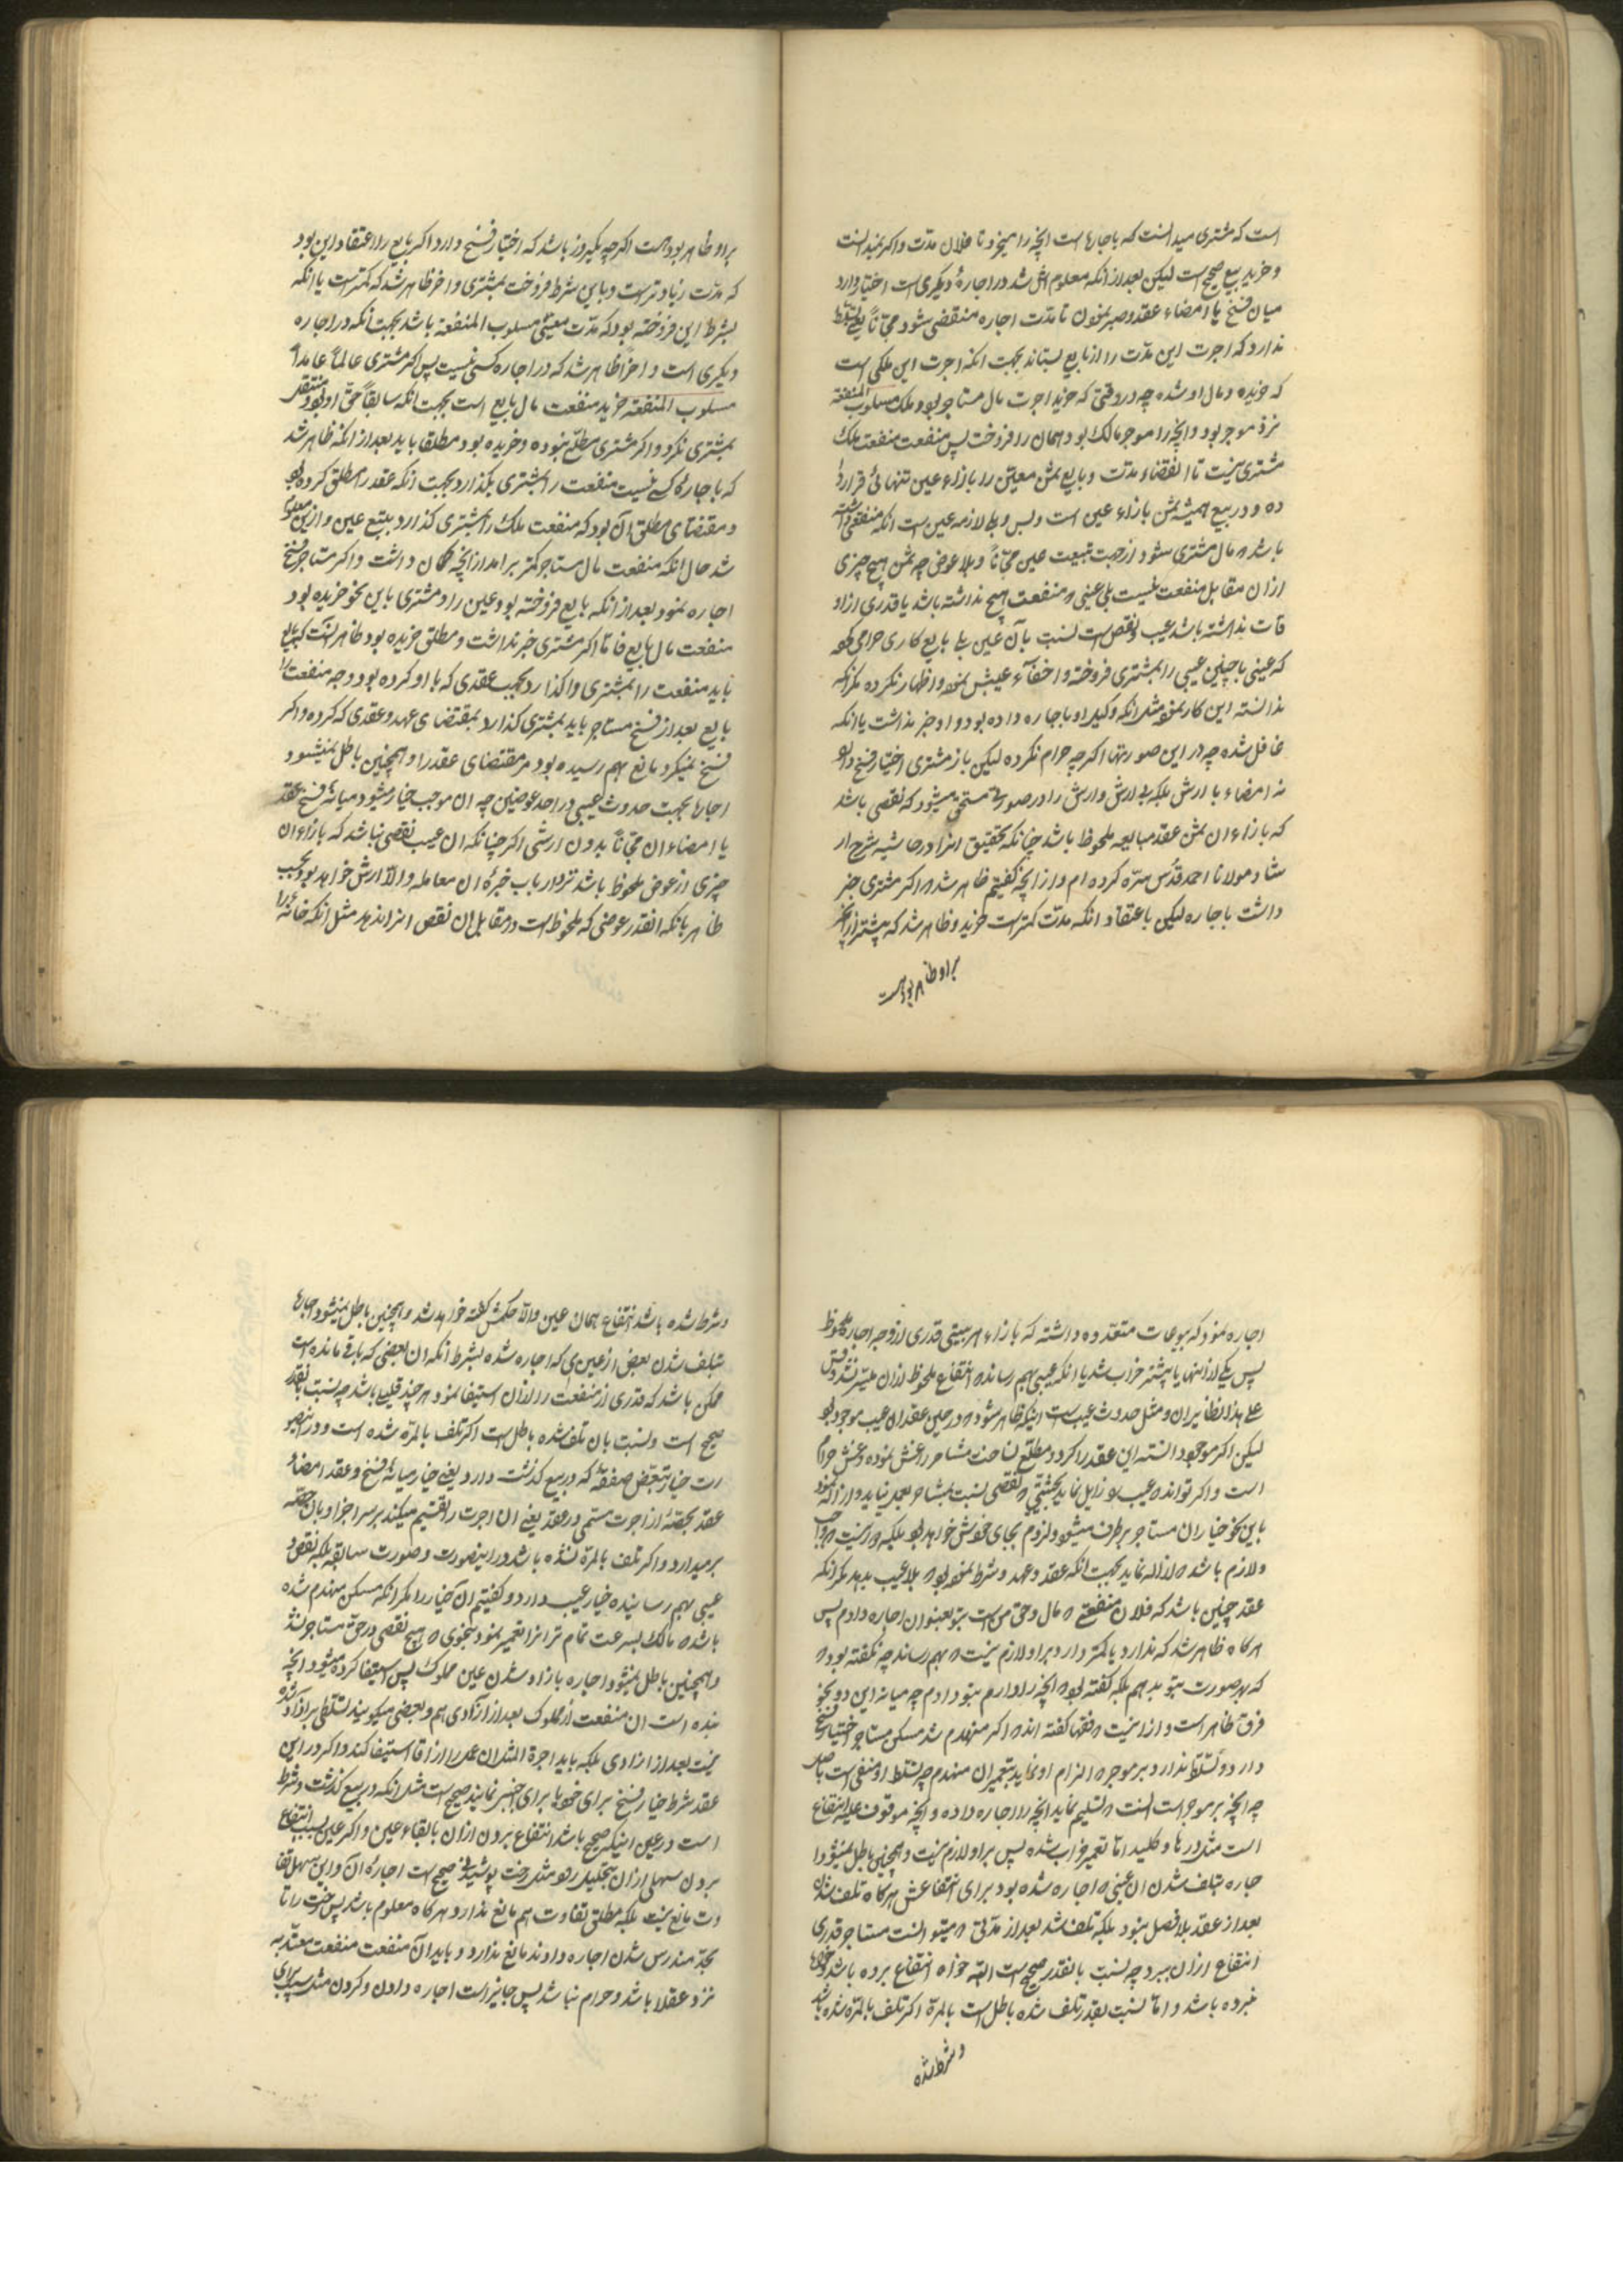 است که مشتری میدانست که باجاره است انچه را میخرد تا فلان مدت و اکر نمیدانست
و خرید بیع صحیح است لیکن بعد از انکه معلومش شد در اجارهٔ دیکری است اختیار دارد
میان فسخ یا امضاء عقد و صبر نمودن تا مدت اجاره منقضی شود مجّاناً یعنی تسلط
ندارد که اجرت این مدت را از بایع بستاند بجهت انکه اجرت این ملکی است
که خریده و مال او شده چه در وقتی که خرید اجرت مال مستاجر بود و ملک مسلوب المنفعه
نزد موجر بود و انچه را موجر مالک بود همان را فروخت پس منفعت منفعت ملک
مشتری نیست تا انقضاء مدت و بایع ثمن معیّن را بازاء عین تنهائی قرار داد
ه و در بیع همیشه ثمن بازاء عین است و بس و بلی لازمه عین است انکه منفعتی داشته
باشد مال مشتری شود از جهت تبعیت عین مجّاناً و بلا عوض چه ثمن هیچ چیزی
از ان مقابل منفعت نیست بلی عینی منفعت هیچ نداشته باشد یا قدری از او
قات نداشته باشد عیب و نقص است نسبت بآن عین بلی بایع کاری حرامی
که عینی باچنین عیبی را بمشتری فروخته و اخفآء عیبش نموده و اظهار نکرده مکر انکه
ندانسته این کار نموده مثل انکه وکیل او باجاره داده بود و او خبر نداشت یا انکه
غافل شده چه در این صورتها اکرچه حرام نکرده لیکن باز مشتری اختیار فسخ دارد
نه امضاء با ارش بلکه بی ارش و ارش را در صورتی مستحق میشود که نقصی باشد
که بازاء ان ثمن عقد مبایعه ملحوظ باشد چنانکه تحقیق انرا در حاشیه شرح ار
شاد مولانا احمد قدّس سرّه کرده ام و از انچه کفتیم ظاهر شد اکر مشتری خبر
داشت باجاره لیکن باعتقاد انکه مدّت کمتر است خرید و ظاهر شد که بیشتر از انچه
بر او ظاهر بوده است
بر او ظاهر بوده است اکرچه یکروز باشد که اختیار فسخ دارد اکر بایع را اعتقاد این بود
که مدّت زیادتر است و باین شرط فروخت بمشتری و اخر ظاهر شد که کمتر است یا انکه
بشرط این فروخته بود که مدّت معیّنی مسلوب المنفعة باشد بجهت انکه در اجاره
دیکری است و اخراً ظاهر شد که در اجاره کسی نیست پس اکر مشتری عالماً عامداً
مسلوب المنفعه خرید منفعت مال بایع است بجهت انکه سابقاً حقّ او بود و منتقل
بمشتری نکرد و اکر مشتری مطلع نبوده و خریده بود مطلقا باید بعد از انکه ظاهر شد
که باجارهٔ کسی نیست منفعت را بمشتری بکذارد بجهت انکه عقد را مطلق کرده بود
و مقتضای مطلق آن بود که منفعت ملک را بمشتری کذارد بتبع عین و از این معلوم
شد حال انکه منفعت مال مستاجر کمتر برامد از انچه کمان داشت و اکر مستاجر فسخ
اجاره نمود بعد از انکه بایع فروخته بود عین را و مشتری باین نحو خریده بود
منفعت مال بایع فاما اکر مشتری خبر نداشت و مطلق خریده بود ظاهر آنست که بایع
باید منفعت را بمشتری واکذارد بجهت عقدی که با او کرده بود و جه منفعت را
بایع بعد از فسخ مستاجر باید بمشتری کذارد بمقتضای عهد و عقدی که کرده و اکر
فسخ نمیکرد مانع بهم رسیده بود مر مقتضای عقد را و همچنین باطل نمیشود
اجاره بجهت حدوث عیبی در احد عوضین چه ان موجب خیار میشود میانهٔ فسخ عقد
یا امضاء ان مجّاناً بدون ارشی اکر چنانکه ان عیب نقصی نباشد که بازاء ان
چیزی از عوض ملحوظ باشد نزد ارباب خبرهٔ ان معامله و الّا ارش خواهد بود بحسب
ظاهر بانکه انقدر عوضی که ملحوظ است در مقابل ان نقص انرا ندهد مثل انکه خانه را
اجاره نمود که بیوتات متعدده داشته که بازاء هر بیتی قدری از وجه اجاره ملحوظ
پس یکی از اینها یا بیشتر خراب شد یا انکه عیبی بهم رساند انتفاع ملحوظ از ان میسّر نشد و قس
علی هذا نظایر ان و مثل حدوث عیب است اینکه ظاهر شود در حین عقد ان عیب موجود بود
لیکن اکر موجود دانسته این عقد را کرد و مطلّع نساخت مستاجر را غش نموده و غش حرام
است و اکر تواند عیب را زایل نماید بحیثیتی نقصی نسبت بمستاجر بعمل نیاید و ازاله نمود
باین نحو خیار ان مستاجر برطرف میشود و لزوم بجای خودش خواهد بود بلکه دور نیست واجب
و لازم باشد ازاله نماید بجهت انکه عقد و عهد و شرط نموده بود بلا عیب بدهد مکر انکه
عقد چنین باشد که فلان منفعتی مال و حق من است بتو بعنوان اجاره دادم پس
هرکاه ظاهر شد که ندارد یا کمتر دارد بر او لازم نیست بهم رساند چه نکفته بود
که بهر صورت بتو بدهم بلکه کفته بود انچه را دارم بتو دادم چه میانه این دو نحو
فرق ظاهر است و از اینست فقها کفته اند اکر منهدم شد مسکن مستاجر اختیار فسخ
دارد و تسلّط ندارد بر موجر الزام او نماید بتعمیر ان منهدم چه تسلط او منفی است باصل
چه انچه بر موجر است انست تسلیم نماید انچه را اجاره داده و انچه موقوف علیه انتفاع
است مثل درها و کلید امّا تعمیر خراب شده پس بر او لازم نیست و همچنین باطل نمیشود ا
جاره بتلف شدن ان عینی اجاره شده بود برای انتفاعش هرکاه تلف شدن
بعد از عقد بلا فصل نبود بلکه تلف شد بعد از مدّتی میتوانست مستاجر قدری
انتفاع از ان ببرد چه نسبت بانقدر صحیح است البته خواه انتفاع برده باشد و خواه
نبرده باشد و امّا نسبت بقدر تلف شده باطل است بالمرّة اکر تلف بالمرّه شده باشد
و شرط شده
و شرط شده باشد انتفاع همان عین و الّا حکمش کفته خواهد شد و همچنین باطل نمیشود اجاره
بتلف شدن بعض از عینی که اجاره شده بشرط انکه ان بعضی که باقی مانده است
ممکن باشد که قدری از منفعت را از ان استیفا نمود هرچند قلیلی باشد چه نسبت بانقدر
صحیح است و نسبت بان تلف شده باطل است اکر تلف بالمرّه شده است و در اینصو
رت خیار تبعّض صفقه که در بیع کذشت دارد یعنی خیار میانهٔ فسخ و عقد امضاء
عقد بحصّهٔ از اجرت مسمّی در عقد یعنی ان اجرت را تقسیم میکند بر سر اجزا و بان حصّه
برمیدارد و اکر تلف بالمرّة نشده باشد در اینصورت و صورت سابقه بلکه نقص و
عیبی بهم رسانیده خیار عیب دارد و کفتیم آن خیار را مکر انکه مسکن منهدم شده
باشد مالک بسرعت تمام تر انرا تعمیر نمود بنحوی هیچ نقصی در حق مستاجر نشد
و همچنین باطل نمیشود اجاره بازاد شدن عین مملوک پس استیفا کرده میشود انچه
بنده است ان منفعت از مملوک بعد از ازادی هم و بعضی میکویند تسلّطی بر آزاد شده
نیست بعد از ازادی بلکه باید اجرة المثل ان عمل را از اقا استیفا کند و اکر در این
عقد شرط خیار فسخ برای خود یا برای اجنبی نماید صحیح است مثل انکه در بیع کذشت و شرط
است در عین اینکه صحیح باشد انتفاع بردن از ان با بقاء عین و اکر عین بسبب انتفاع
بردن سهل از ان بتحلیل رود مثل رخت پوشیدنی صحیح است اجارهٔ آن و این سهل تفا
وت مانع نیست بلکه مطلق تفاوت هم مانع ندارد هرکاه معلوم باشد پس رخت را تا
بحدّ مندرس شدن اجاره دادند مانع ندارد و باید آن منفعت منفعت معتدّ به
نزد عقلا باشد و حرام نباشد پس جایز است اجاره دادن و کردن مثل سیب برای